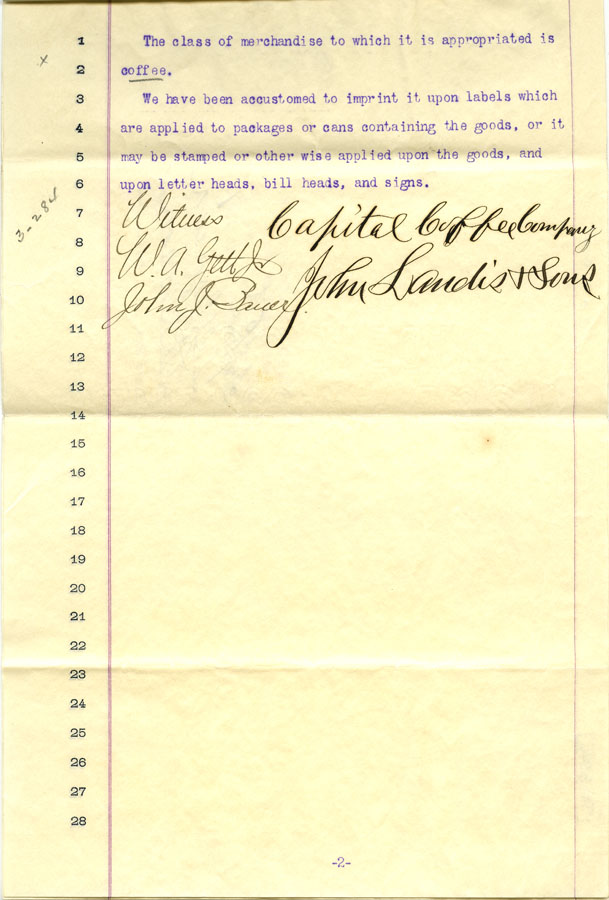 1 The class of merchandise to which it is appropriated is
2 coffee.
3 We have been accustomed to imprint it upon labels which
4 are applied to packages or cans containing the goods, or it
5 may be stamped or other wise applied upon the goods, and
6 upon letter heads, bill heads, and signs.
3-284
7 Witness Capital Coffee Company
8
9 W. A. Jr John Landis & Sons
10 John J.
11
12
13
14
15
16
17
18
19
20
21
22
23
24
25
26
27
28
-2-